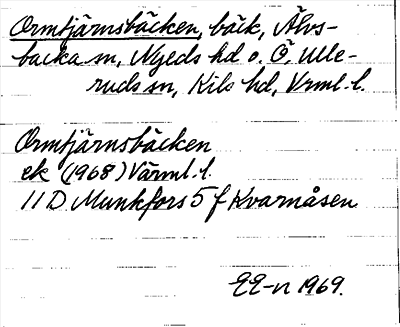 Ormtjärnsbäcken, bäck, Älvs-
backa sn, Nyeds hd o. Ö. Ulle-
ruds sn, Kils hd, Vrml. l.
Ormtjärnsbäcken
ek (1968) Värml. l.
11 D. Munkfors 5 f Kvarnåsen
EE-n 1969.